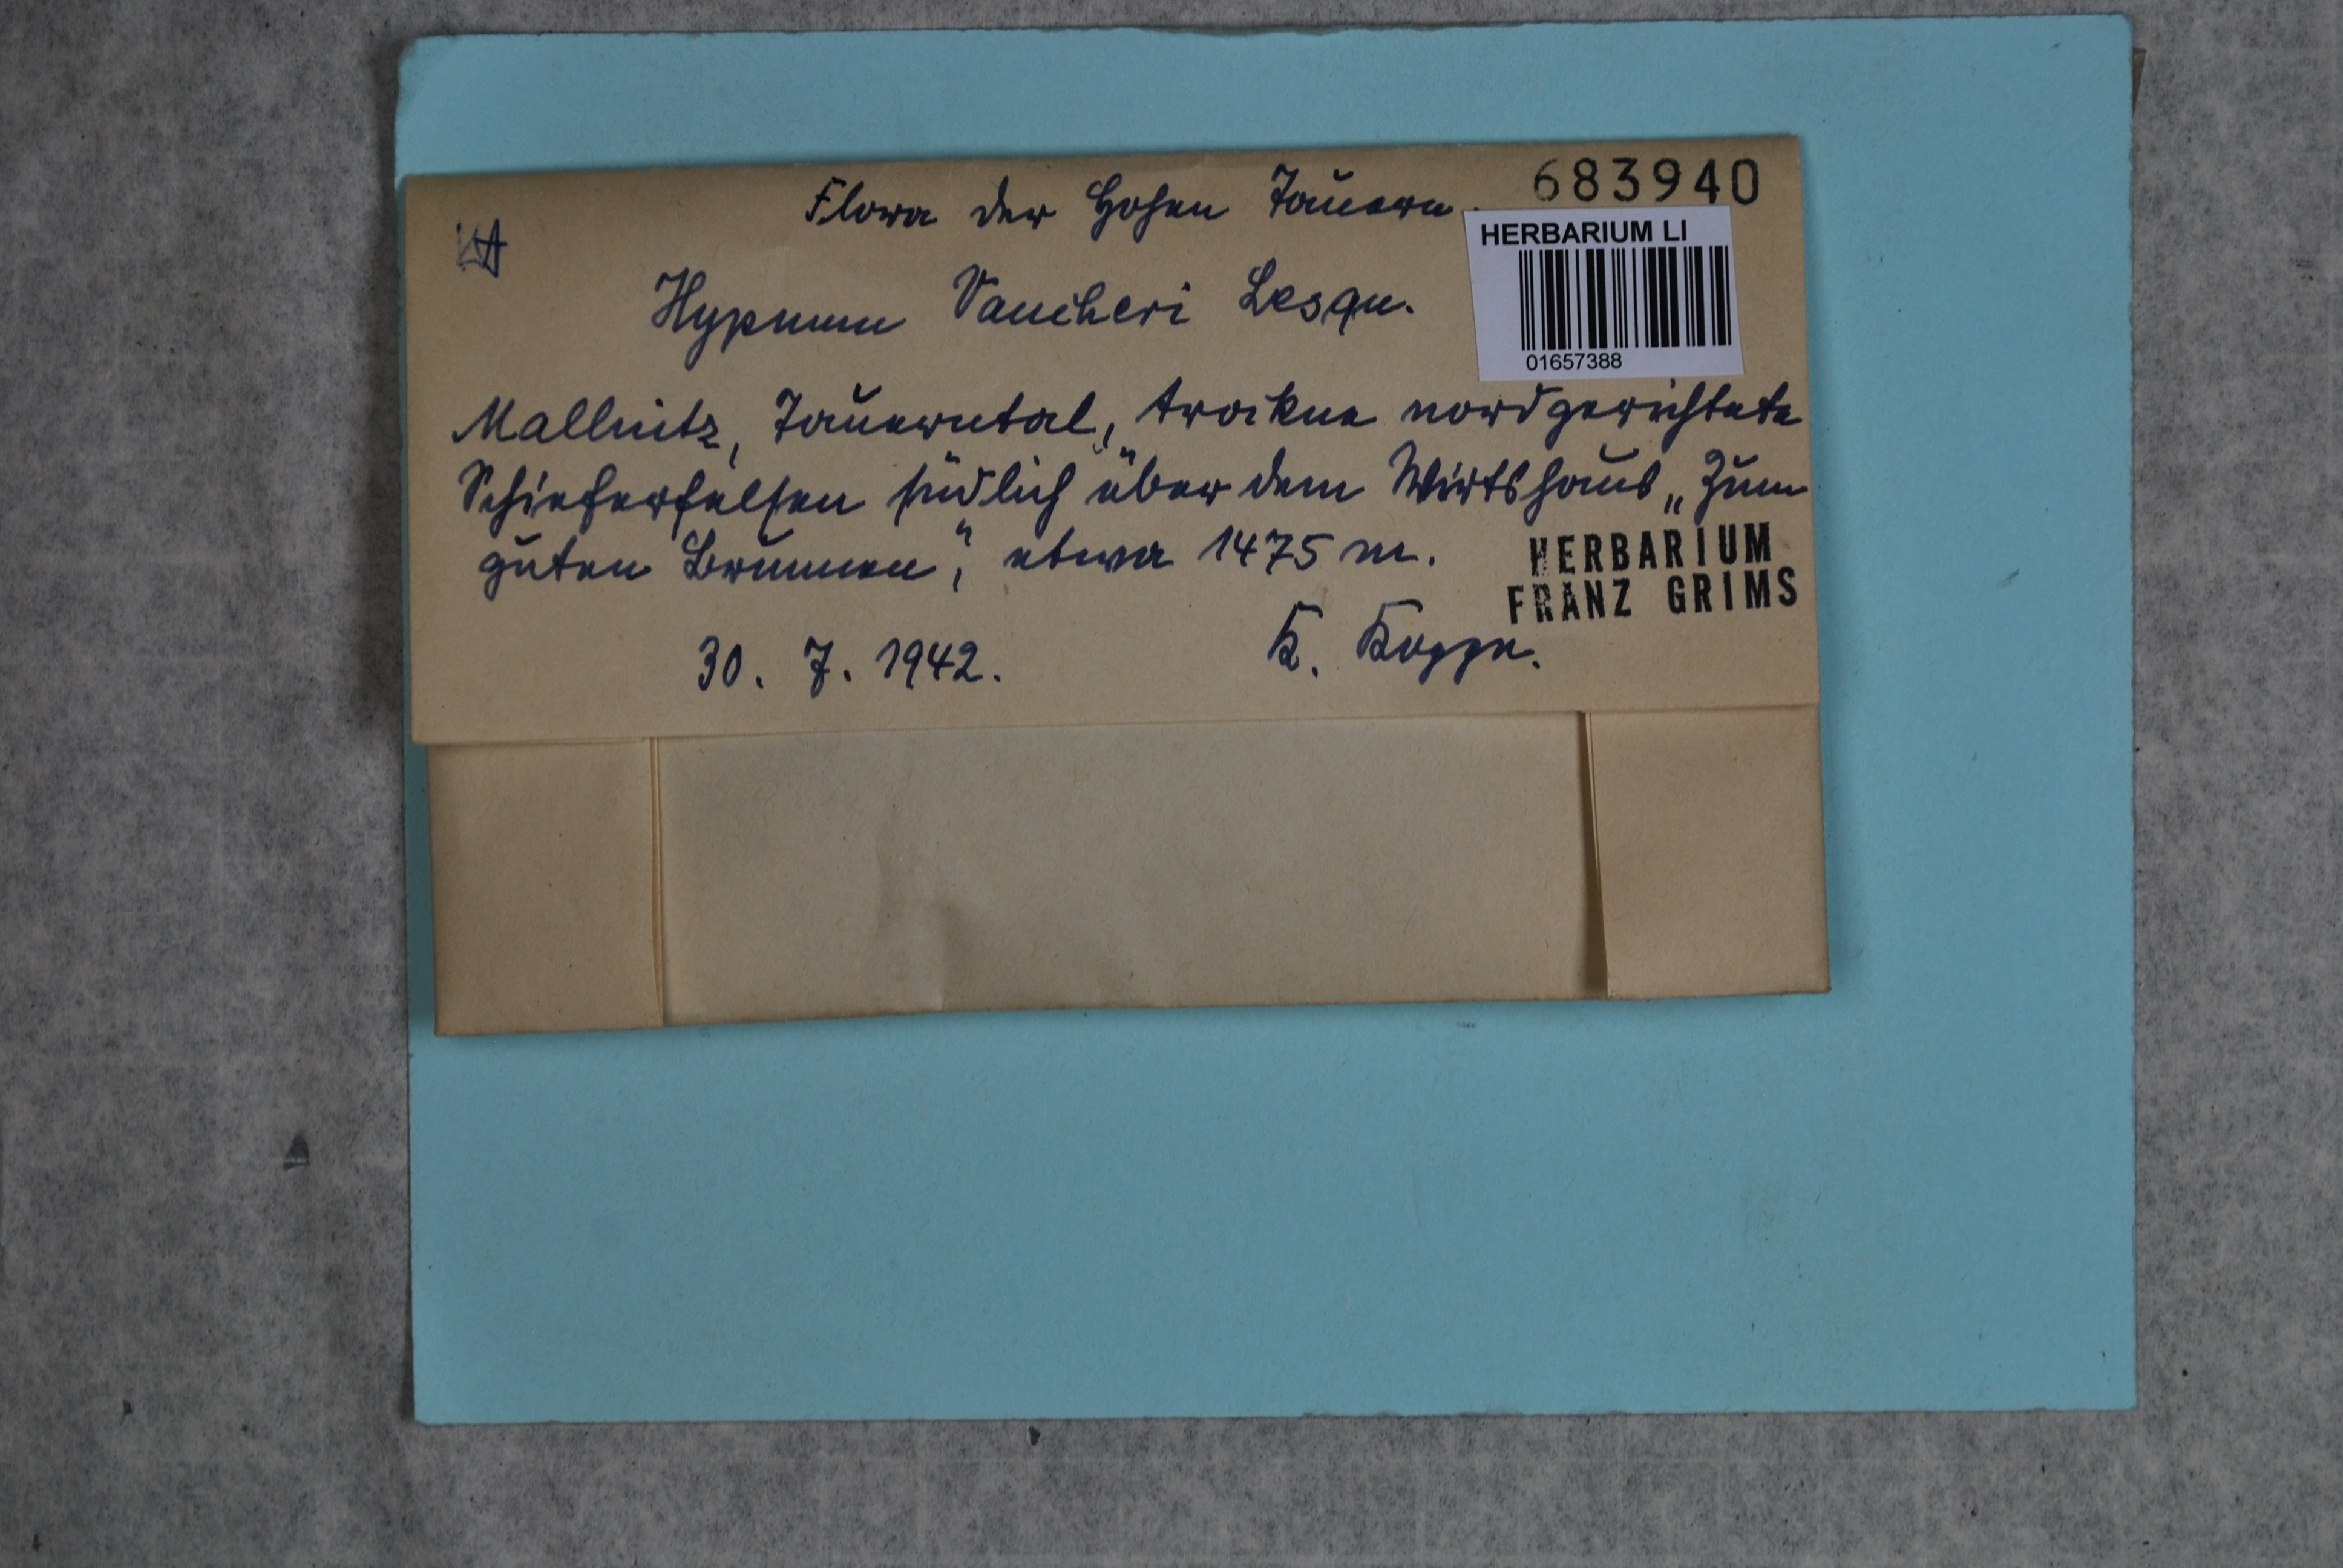 Flora der Hohen Tauern. 683940
HERBARIUM LI
KA
Hypnum Vaucheri Lesqu.
01657388
Mallnitz, Tauerntal, trockne nordgerichtete
Schieferfelsen südlich über dem Wirtshaus „Zum
guten Brunnen", etwa 1475 m.
HERBARIUM
FRANZ GRIMS
30. 7. 1942. K. Koppe.